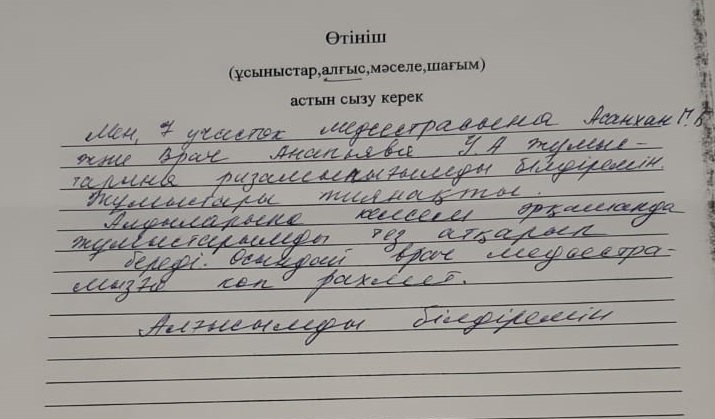 Өтініш
(ұсыныстар,алғыс,мәселе,шағым)
астын сызу керек
Мен, 7 участок медсестрасына Асанхан П.Б
және Врач Анапьявя У.А жұмыс-
тарына ризашылығымды білдіремін.
Жұмыстары тиянақты.
Алдыларына келсем әрқашанда
жұмыстарымды тез атқарып
береді. Осындай врач медсестра-
мызға көп рахмет.
Алғысымды білдіремін